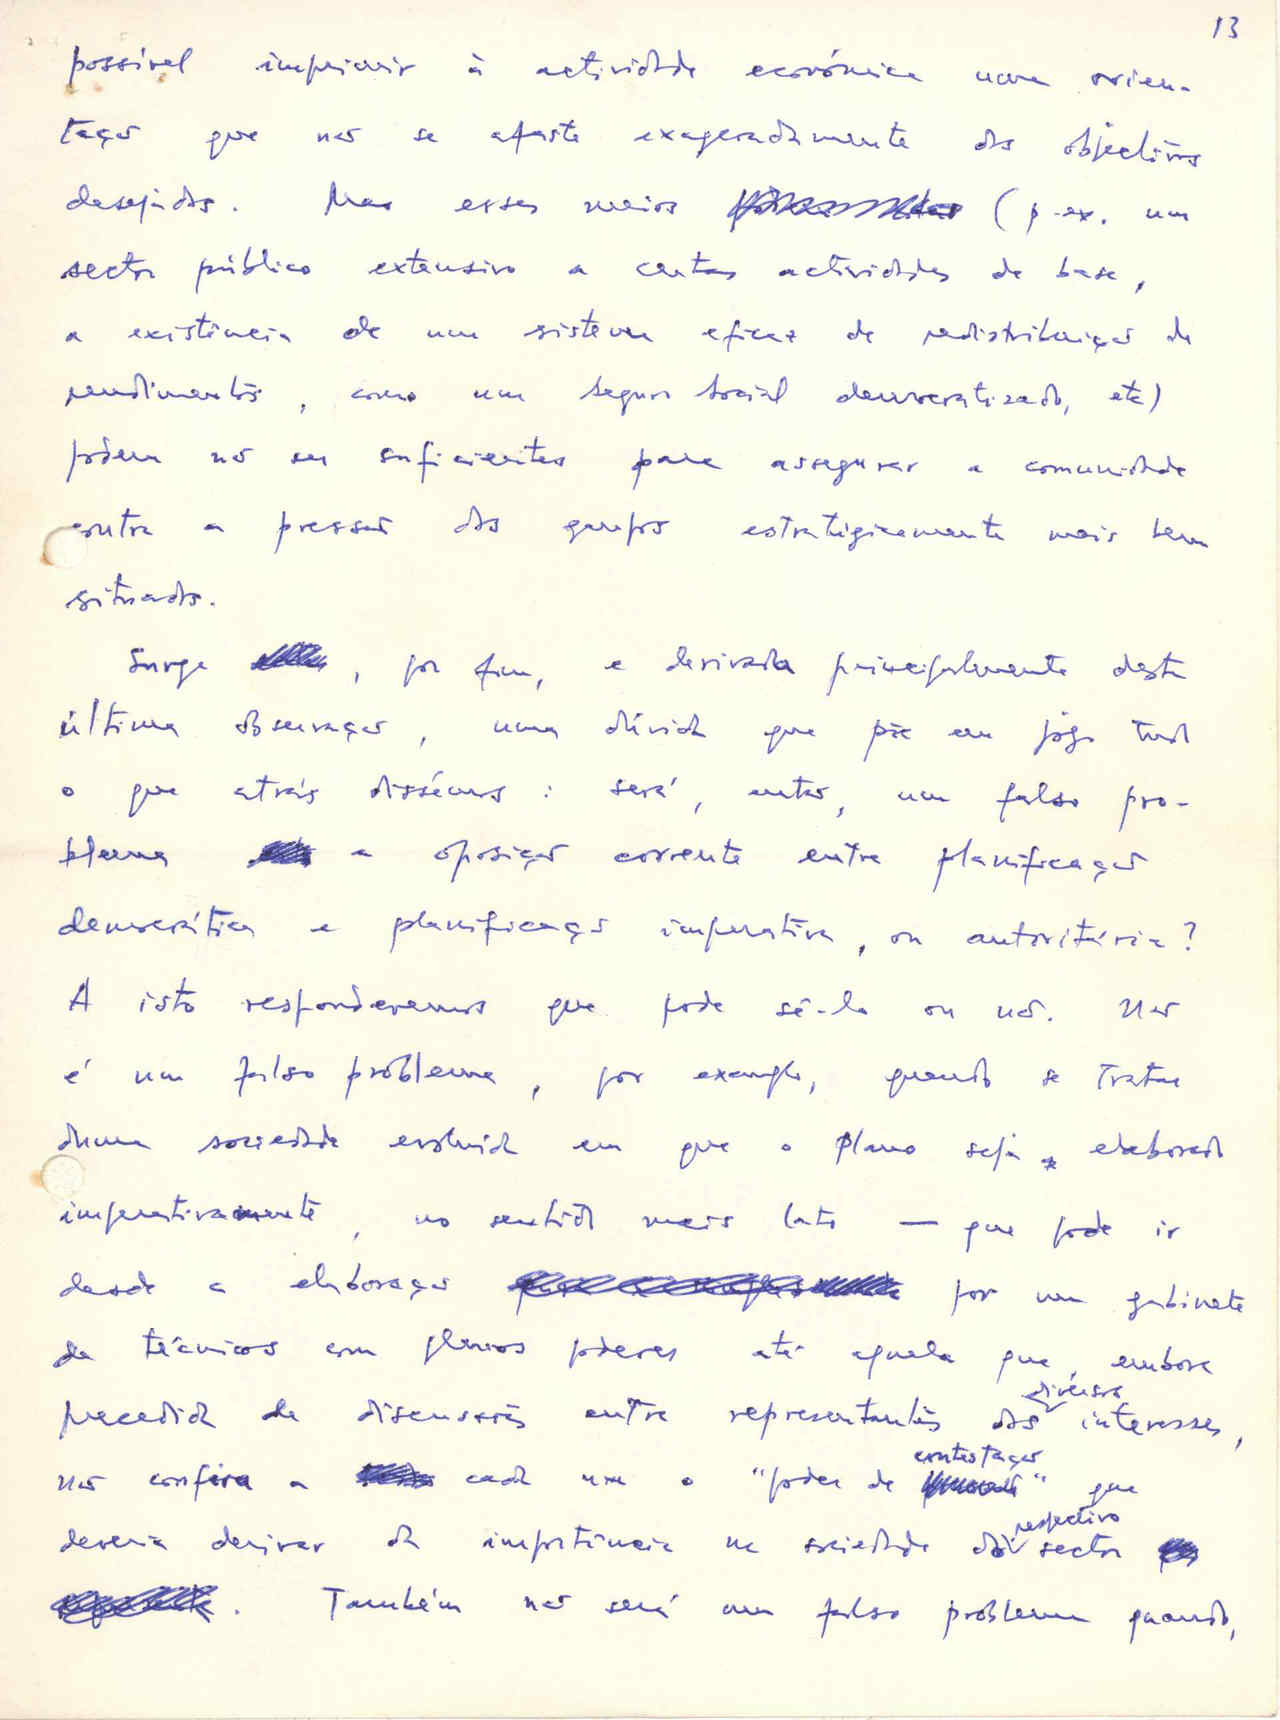 13
possível imprimir à actividade económica uma orien-
tação que não se afaste exageradamente dos objectivos
desejados. Mas esses meios (p. ex. um
sector público extensivo a certas actividades de base,
a existência de um sistema eficaz de redistribuição de
rendimentos, como um seguro social democratizado, etc)
podem não ser suficientes para assegurar a comunidade
contra a pressão dos grupos estratègicamente mais bem
situados.
Surge , por fim, e derivada principalmente desta
última observação, uma dúvida que põe em jôgo tudo
o que atrás dissémos: será, então, um falso pro-
blema a oposição corrente entre planificação
democrática e planificação imperativa, ou autoritária?
A isto responderemos que pode sê-lo ou não. Não
é um falso problema, por exemplo, quando se trata
duma sociedade evoluída em que o plano seja elaborado
imperativamente, no sentido mais lato — que pode ir
desde a elaboração por um gabinete
de técnicos com plenos poderes até aquela que, embora
precedida de discussões entre representantes dos diversos interesses,
não confira a cada um o "poder de contestação" que
deveria derivar da importância na sociedade do respectivo sector
. Também não será um falso problema quando,